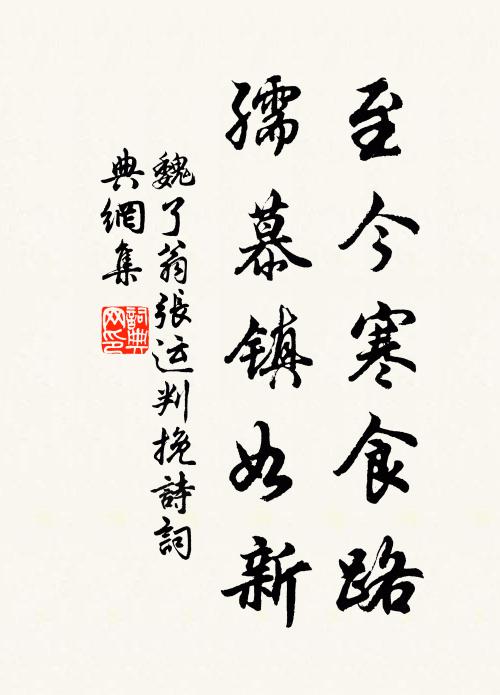 至今寒食路
孺慕镇如新
魏了翁張运判挽詩詞
典網集
詞典
网印